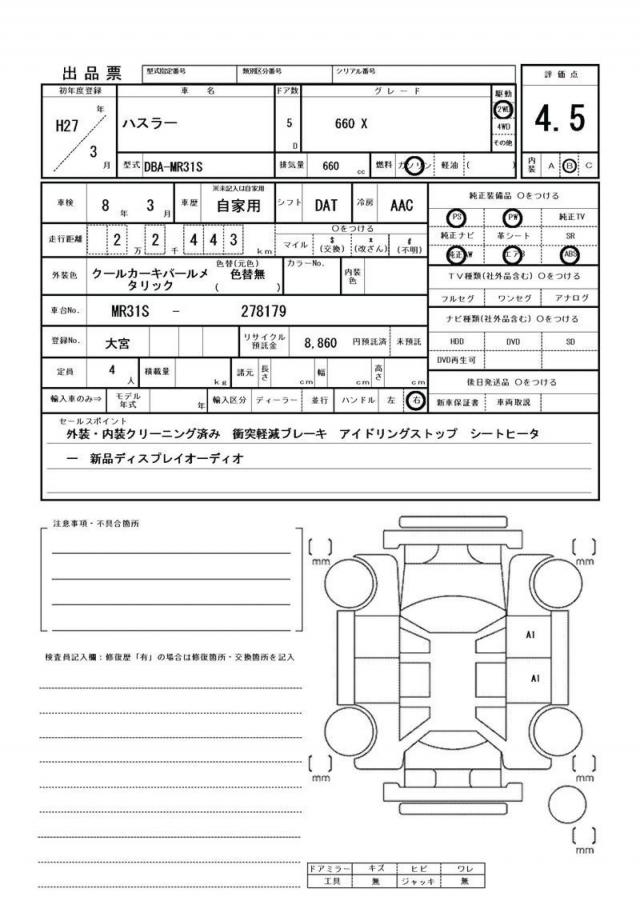 出品票 型式指定番号 類別区分番号 シリアル番号 評価点
初年度登録 車名 ドア数 グレード 駆動
H27 年 3 月 ハスラー 5 D 660 X 2WD 4WD その他 4.5
型式 DBA-MR31S 排気量 660 cc 燃料 ガソリン 軽油 ( ) 内装 A B C
車検 8 年 3 月 車歴 ※未記入は自家用 自家用 シフト DAT 冷房 AAC
純正装備品 〇をつける
走行距離 2 万 2 千 4 4 3 km 〇をつける マイル $ (交換) x (改ざん) # (不明)
PS PW 純正TV
純正ナビ 革シート SR
純正AW エアB ABS
外装色 クールカーキパールメタリック 色替(元色) 色替無 ( ) カラーNo. 内装色
TV種類(社外品含む) 〇をつける
フルセグ ワンセグ アナログ
車台No. MR31S - 278179
ナビ種類(社外品含む) 〇をつける
登録No. 大宮 リサイクル預託金 8,860 円預託済 未預託
HDD DVD SD
DVD再生可
定員 4 人 積載量 kg 諸元 長さ cm 幅 cm 高さ cm
後日発送品 〇をつける
輸入車のみ⇒ モデル年式 年 輸入区分 ディーラー 並行 ハンドル 左 右
新車保証書 車両取説
セールスポイント
外装・内装クリーニング済み 衝突軽減ブレーキ アイドリングストップ シートヒータ
ー 新品ディスプレイオーディオ
注意事項・不具合箇所
[ ] mm [ ] mm
検査員記入欄：修復歴「有」の場合は修復箇所・交換箇所を記入
A1
A1
[ ] mm [ ] mm
[ ] mm
ドアミラー キズ ヒビ ワレ
工具 無 ジャッキ 無